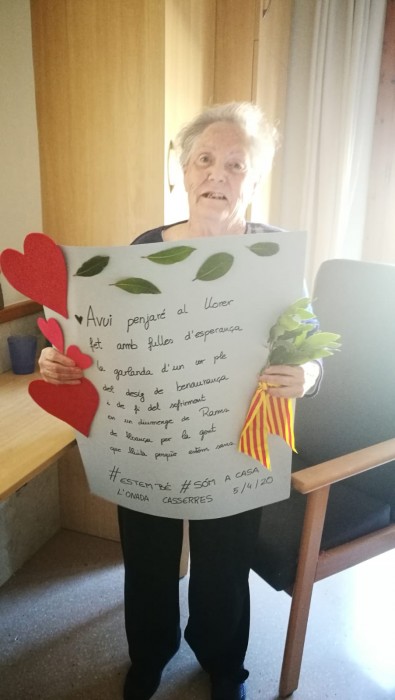 Avui penjaré al llorer
fet amb fulles d'esperança
la garlanda d'un cor ple
del desig de benaurança
i de fi del sofriment
en un diumenge de Rams
de lloança per la gent
que lluita perquè estem sans.
#ESTEM BÉ #SÓM A CASA
L'ONADA CASSERRES 5/4/20